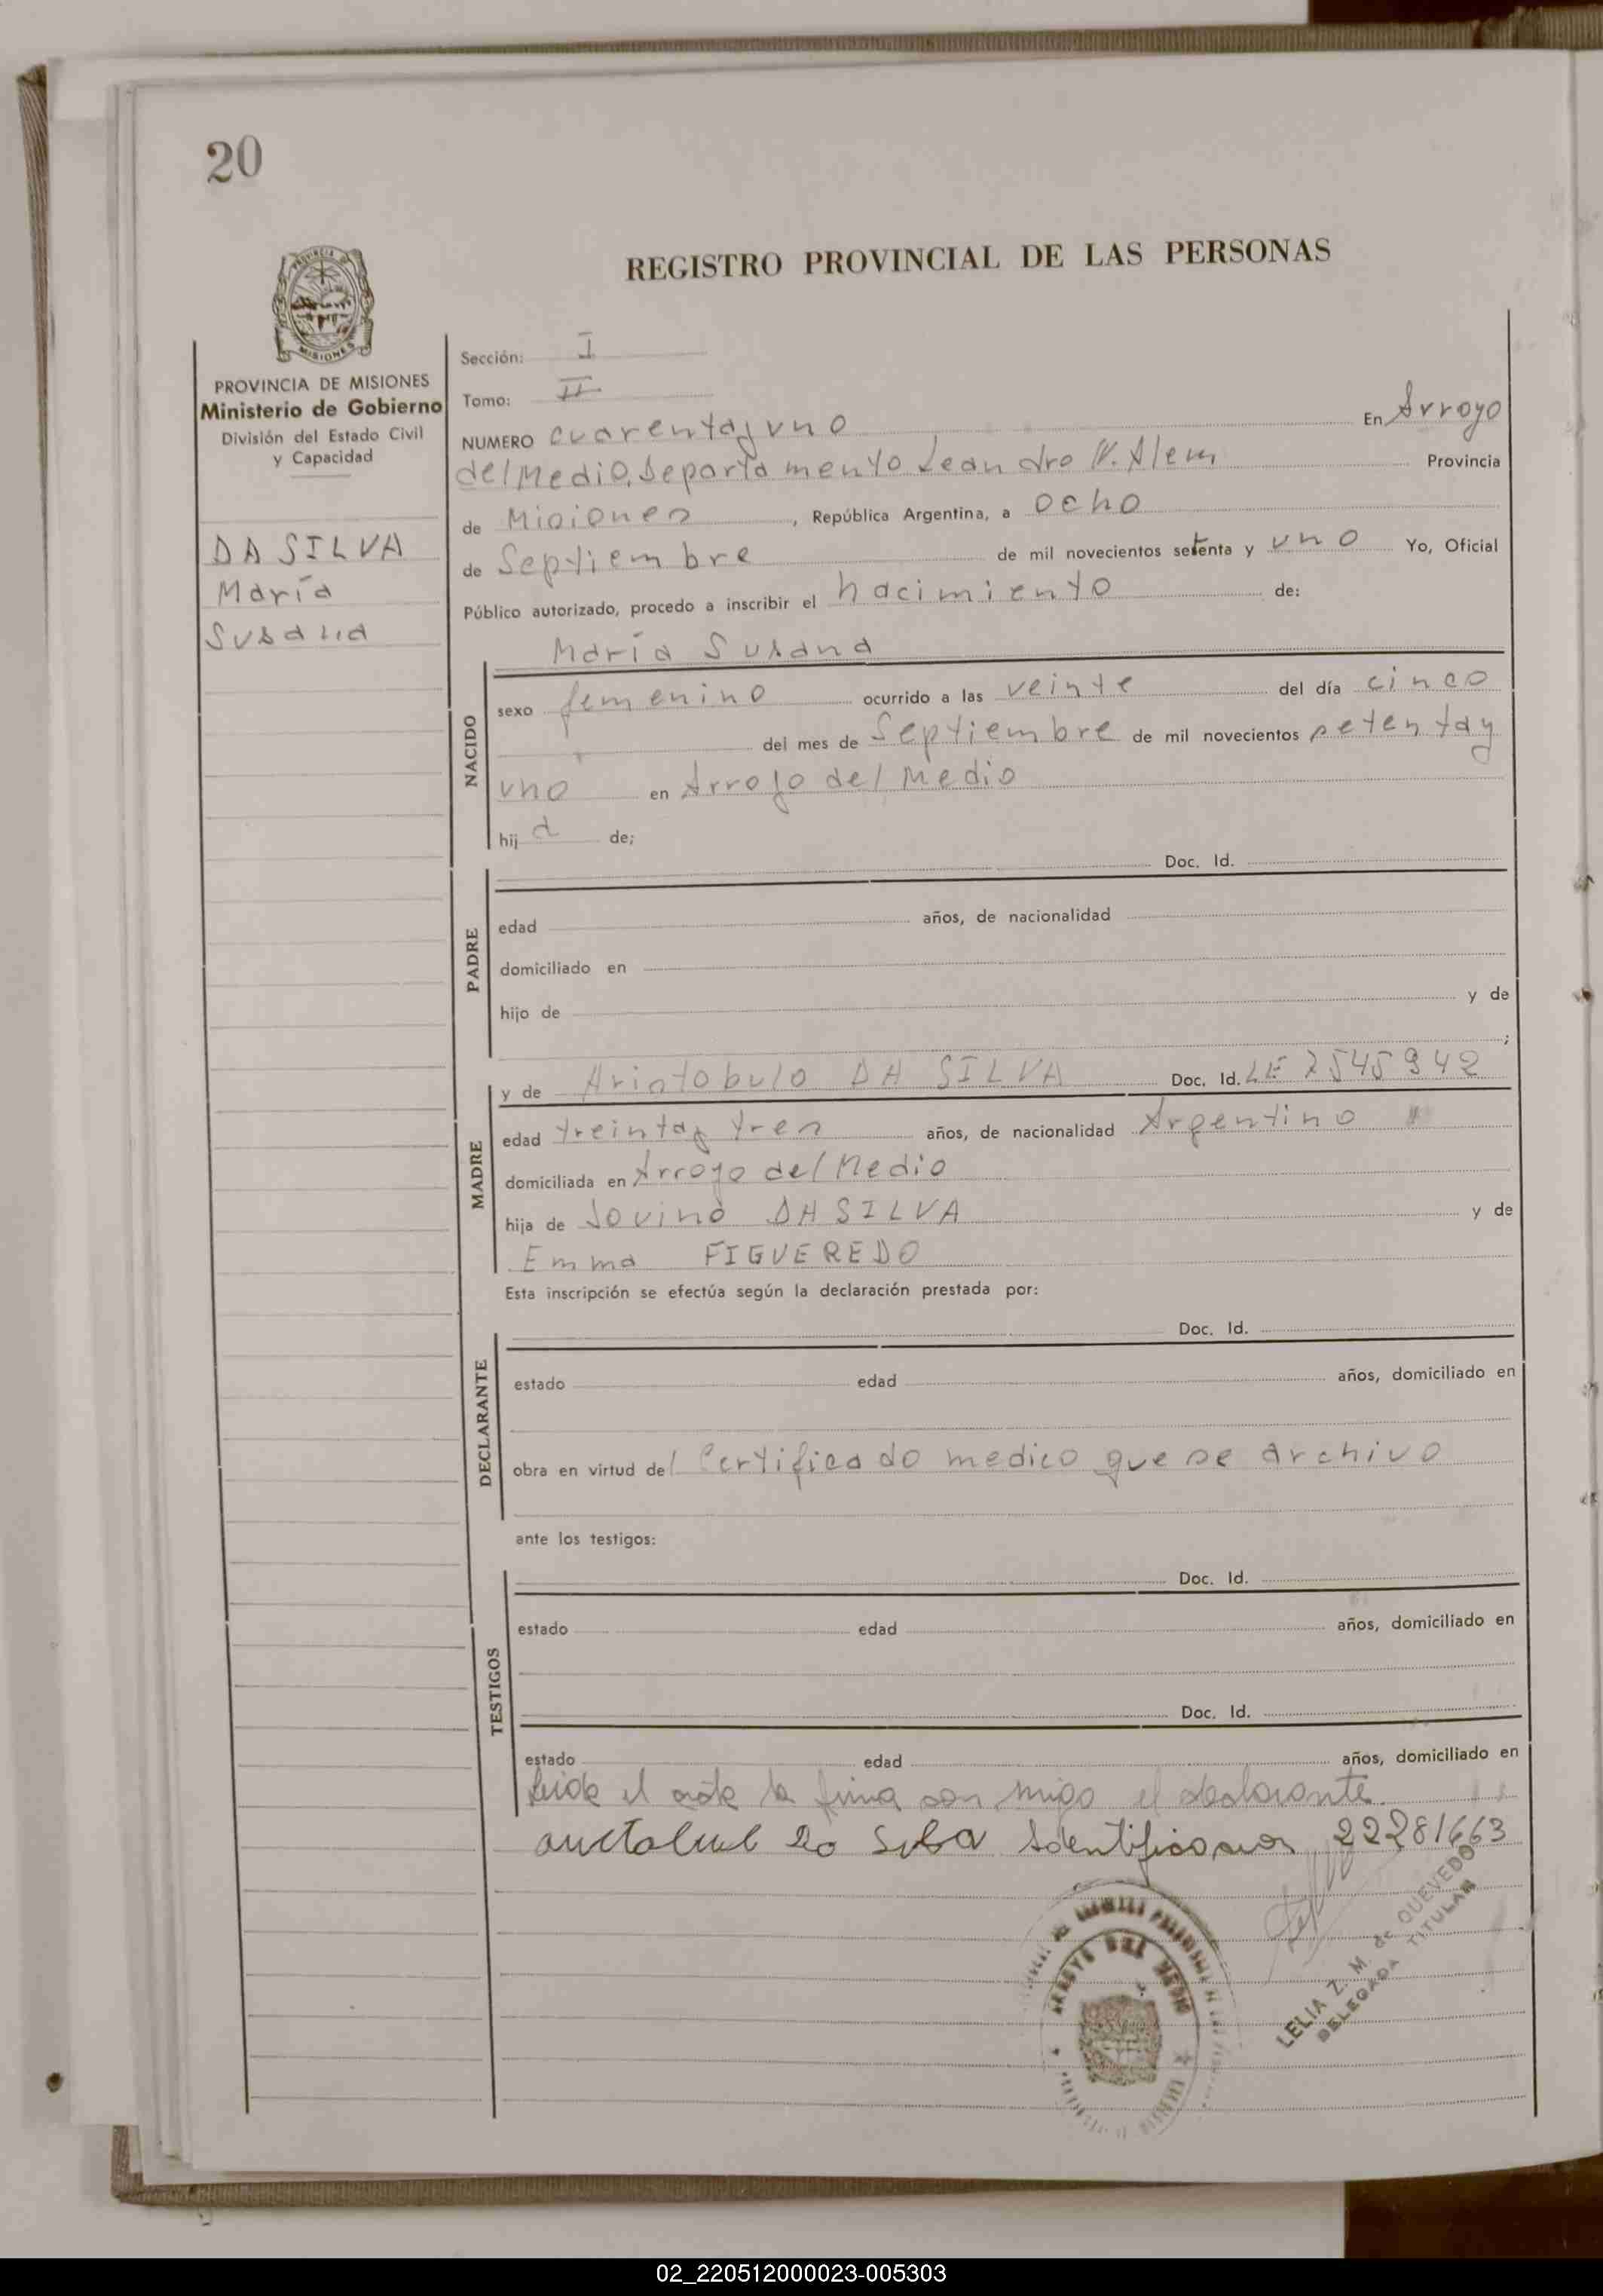 20
REGISTRO PROVINCIAL DE LAS PERSONAS
PROVINCIA DE MISIONES
MISIONES
PROVINCIA DE MISIONES
Ministerio de Gobierno
División del Estado Civil
y Capacidad
DA SILVA
María
Susana
Sección: I
Tomo: II
NUMERO cuarentay uno En Arroyo
del Medio, Departamento Leandro N. Alem Provincia
de Misiones, República Argentina, a ocho
de Septiembre de mil novecientos setenta y uno Yo, Oficial
Público autorizado, procedo a inscribir el nacimiento de:
María Susana
NACIDO
sexo femenino ocurrido a las veinte del día cinco
del mes de Septiembre de mil novecientos setentay
uno en Arroyo del Medio
hij a de;
Doc. Id.
PADRE
edad años, de nacionalidad
domiciliado en
hijo de y de
;
y de Aristobulo DA SILVA Doc. Id. LE 7545942
MADRE
edad treintay tres años, de nacionalidad Argentino
domiciliada en Arroyo del Medio
hija de Jovino DA SILVA y de
Emma FIGUEREDO
Esta inscripción se efectúa según la declaración prestada por:
Doc. Id.
DECLARANTE
estado edad años, domiciliado en
obra en virtud del Certificado medico que se archivo
ante los testigos:
Doc. Id.
TESTIGOS
estado edad años, domiciliado en
Doc. Id.
estado edad años, domiciliado en
Leida el acta la firma con migo el declarante.
22281663
ARROYO DEL MEDIO
LELIA Z. M. de QUEVEDO
DELEGADA TITULAR
02_220512000023-005303